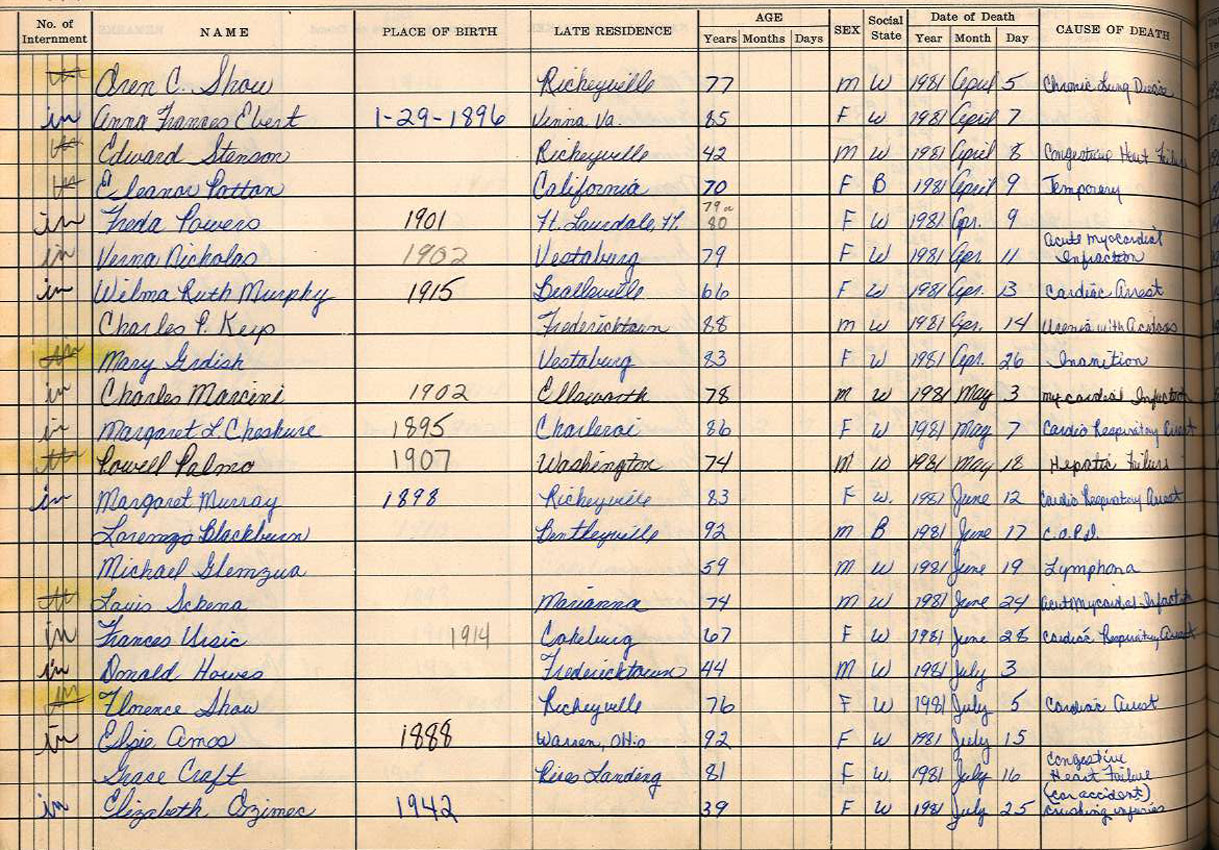 No. of Internment NAME PLACE OF BIRTH LATE RESIDENCE AGE Years Months Days SEX Social State Date of Death Year Month Day CAUSE OF DEATH
Oren C. Shaw Richeyville 77 M W 1981 April 5 Chronic Lung Disease
in Anna Frances Ebert 1-29-1896 Vinna Va. 85 F W 1981 April 7
Edward Stenson Richeyville 42 M W 1981 April 8 Congestive Heart Failure
Eleanor Patton California 70 F B 1981 April 9 Temporary
in Freda Powers 1901 Ft. Laudale, Fl. 79 80 F W 1981 Apr. 9
in Verna Nicholas 1902 Vestaburg 79 F W 1981 Apr 11 Acute Myocardial Infraction
in Wilma Ruth Murphy 1915 Beallsville 66 F W 1981 Apr. 13 Cardiac Arrest
Charles P. Keip Fredericktown 88 M W 1981 Apr. 14 Uremia with
Mary Grdish Vestaburg 83 F W 1981 Apr. 26 Inanition
in Charles Marcini 1902 Ellsworth 78 M W 1981 May 3 Mycardial
in Margaret L. Cheshire 1895 Charleroi 86 F W 1981 May 7 Cardio Respiratory Arrest
Powell Palmo 1907 Washington 74 M W 1981 May 18 Hepatic Failure
in Margaret Murray 1898 Richeyville 83 F W. 1981 June 12 Cardio Respiratory Arrest
Lorenzo Blackburn Bentleyville 92 M B 1981 June 17 C.O.P.D.
Michael Glemzua 59 M W 1981 June 19 Lymphona
Louis Schena Marianna 74 M W 1981 June 24
in Frances Ursic 1914 Cokeburg 67 F W 1981 June 28 Cardiac Respiratory Arrest
in Donald Howes Fredericktown 44 M W 1981 July 3
Florence Shaw Richeyville 76 F W 1981 July 5 Cardiac Arrest
in Elzie Amos 1888 Warren, Ohio 92 F W 1981 July 15
Grace Craft Rices Landing 81 F W. 1981 July 16 Congestive Heart Failure
in Elizabeth Ozimec 1942 39 F W 1981 July 25 (car accident) crushing injuries